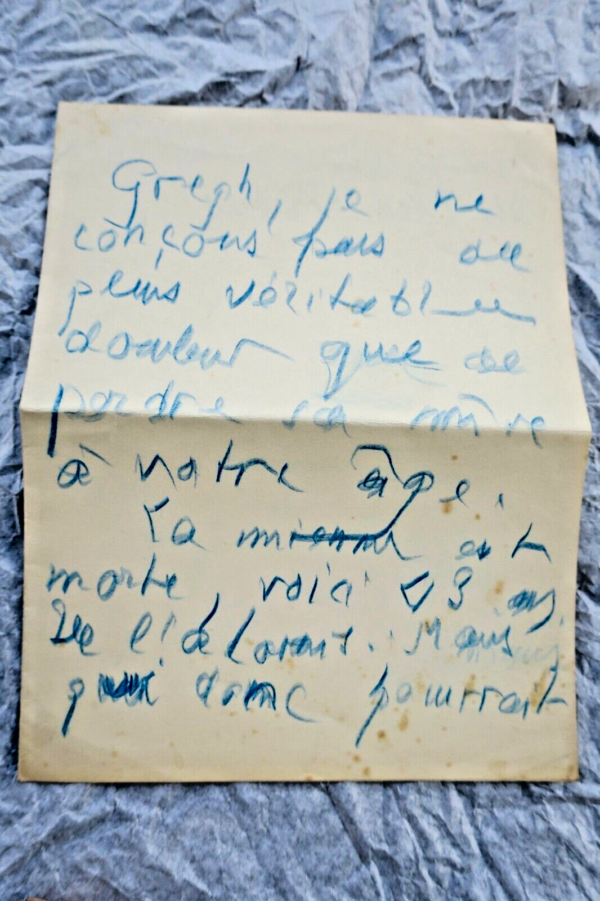 Gregh, je ne
conçois pas de
plus véritable
douleur que de
perdre sa mère
à notre âge.
La mienne est
morte, voici 3 ans.
Je l'adorais. Mais
qui donc pourrait